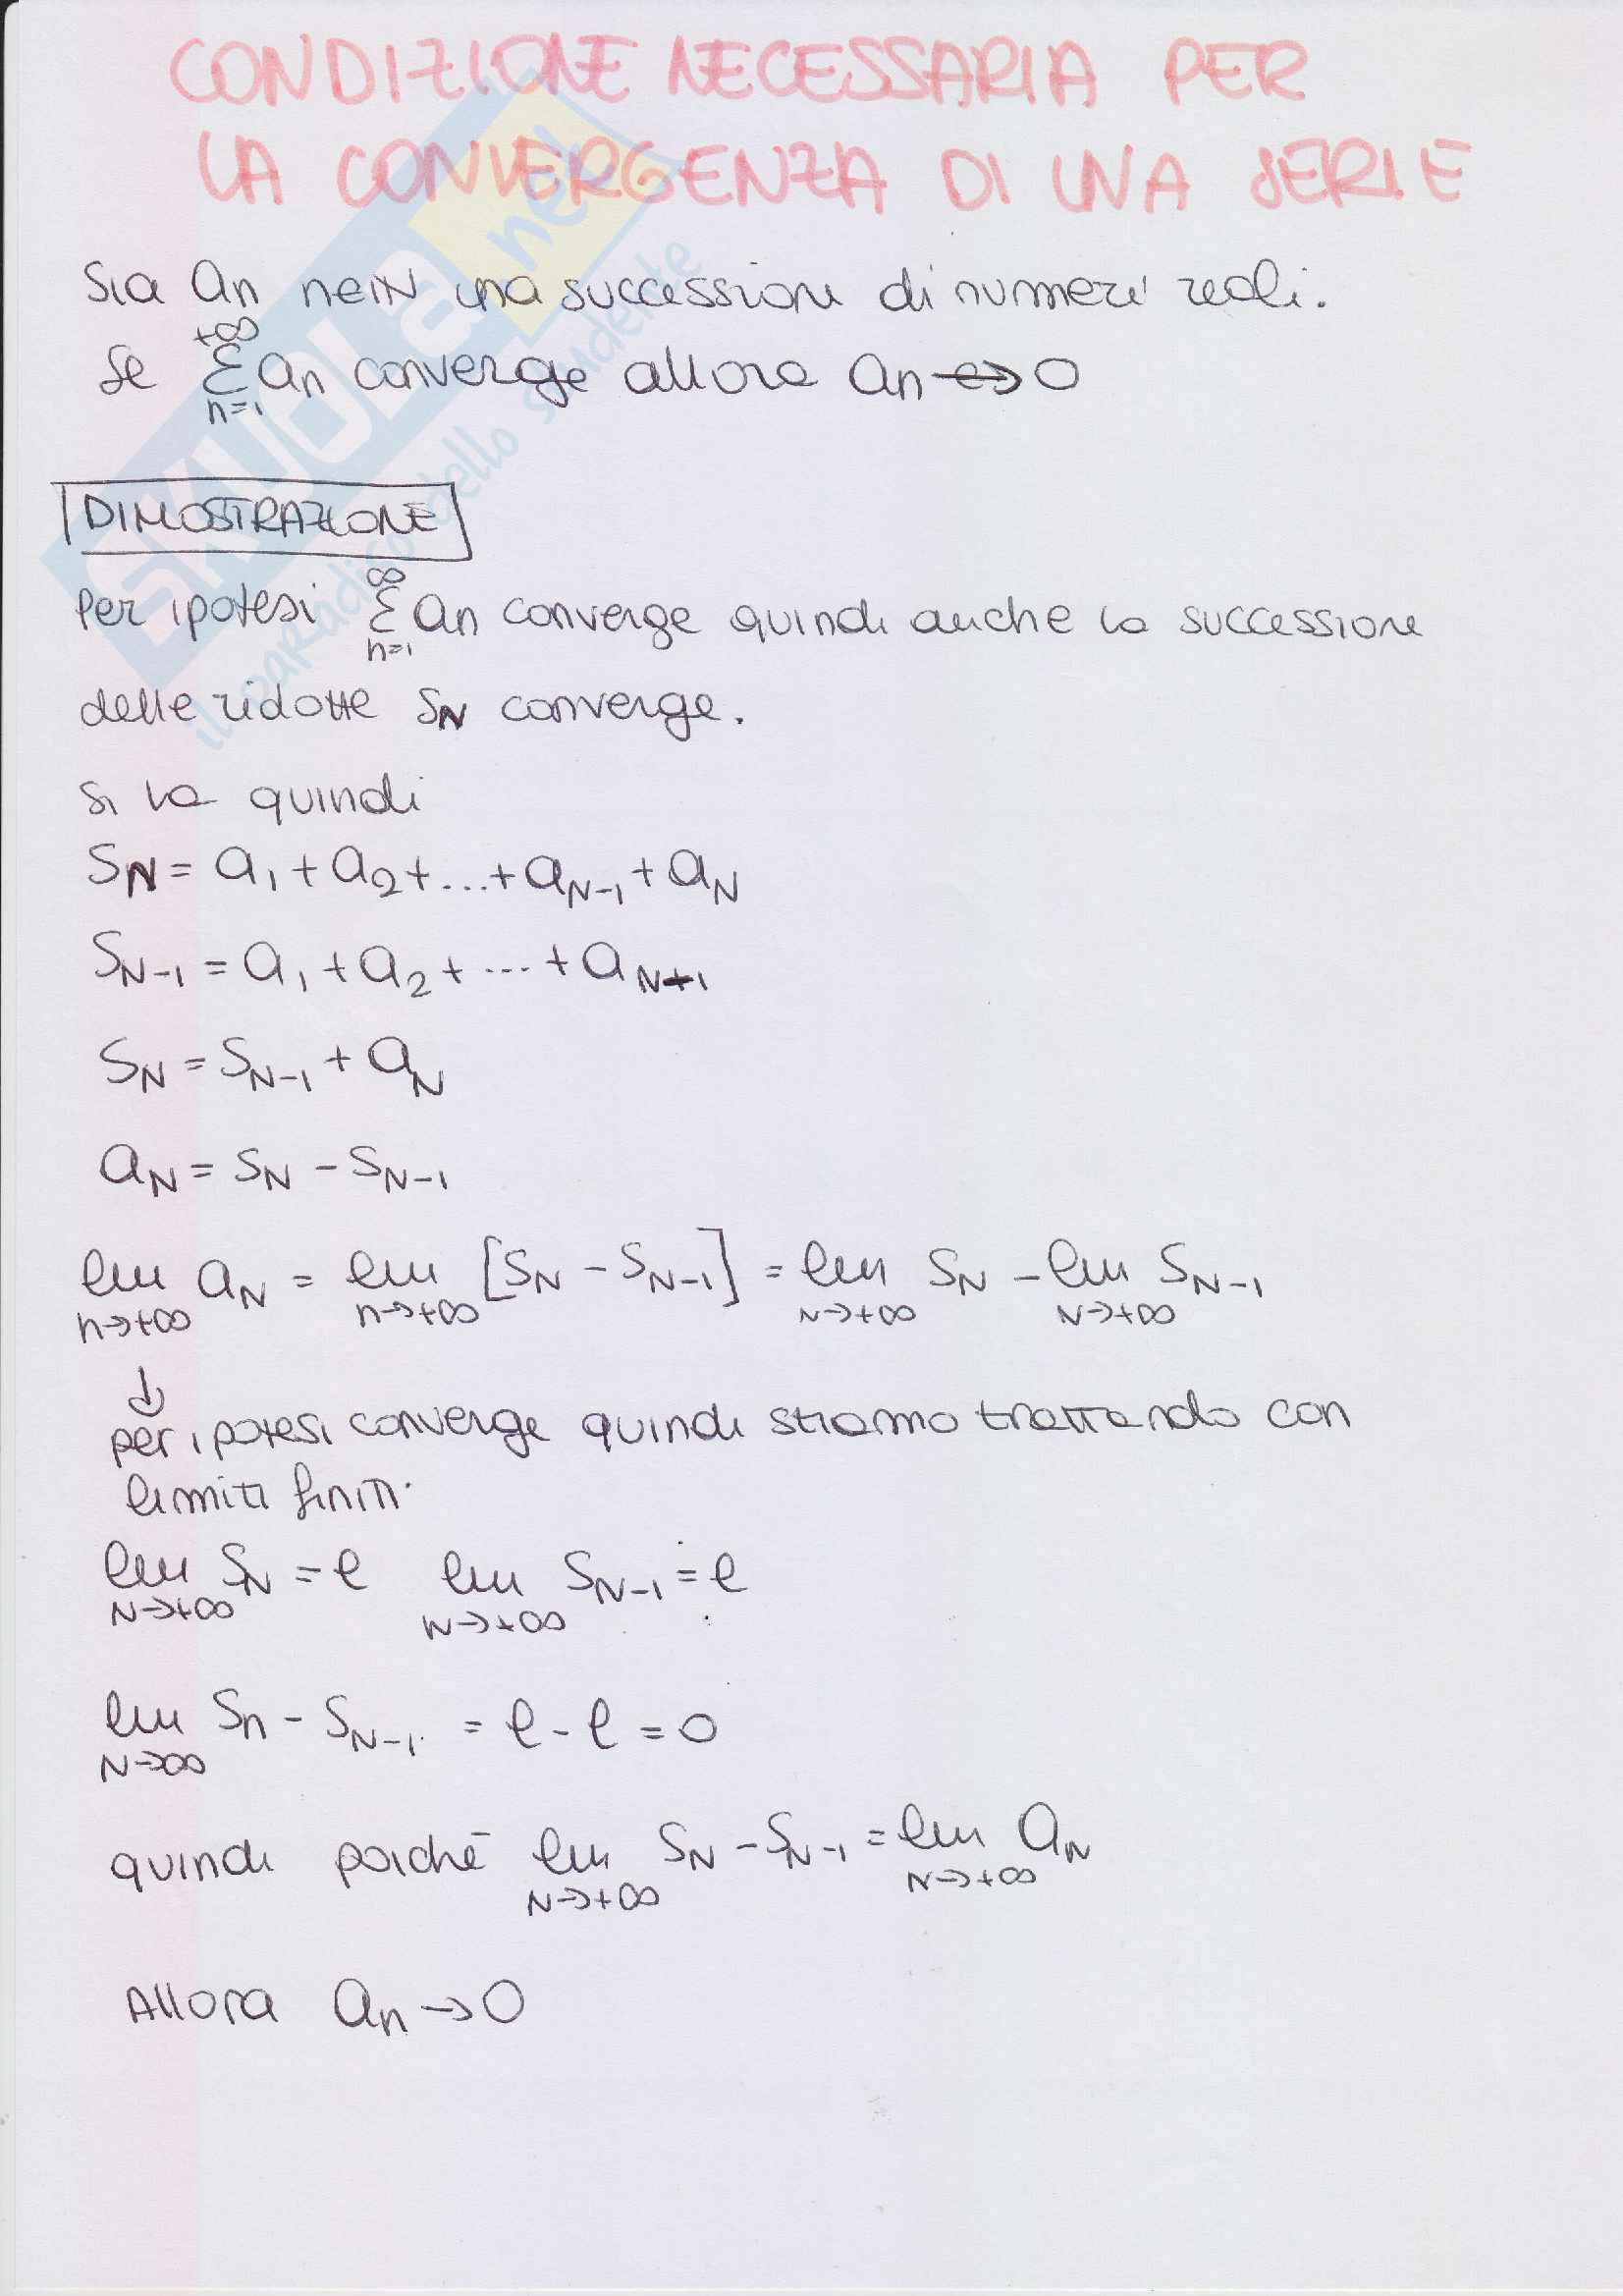 CONDIZIONE NECESSARIA PER
LA CONVERGENZA DI UNA SERIE
Sia an n∈ℕ una successione di numeri reali.
Se +∞ Σ n=1 an converge allora an → 0
DIMOSTRAZIONE
Per ipotesi ∞ Σ n=1 an converge quindi anche la successione
delle ridotte SN converge.
Si ha quindi
SN = a1 + a2 + ... + aN-1 + aN
SN-1 = a1 + a2 + ... + aN+1
SN = SN-1 + aN
aN = SN - SN-1
lim n→+∞ aN = lim n→+∞ [SN - SN-1] = lim N→+∞ SN - lim N→+∞ SN-1
↓
per ipotesi converge quindi stiamo trattando con
limiti finiti.
lim N→+∞ SN = l lim N→+∞ SN-1 = l
lim N→∞ Sn - SN-1 = l - l = 0
quindi poiché lim N→+∞ SN - SN-1 = lim N→+∞ aN
Allora an → 0
SKUOLA.net
il paradiso dello studente